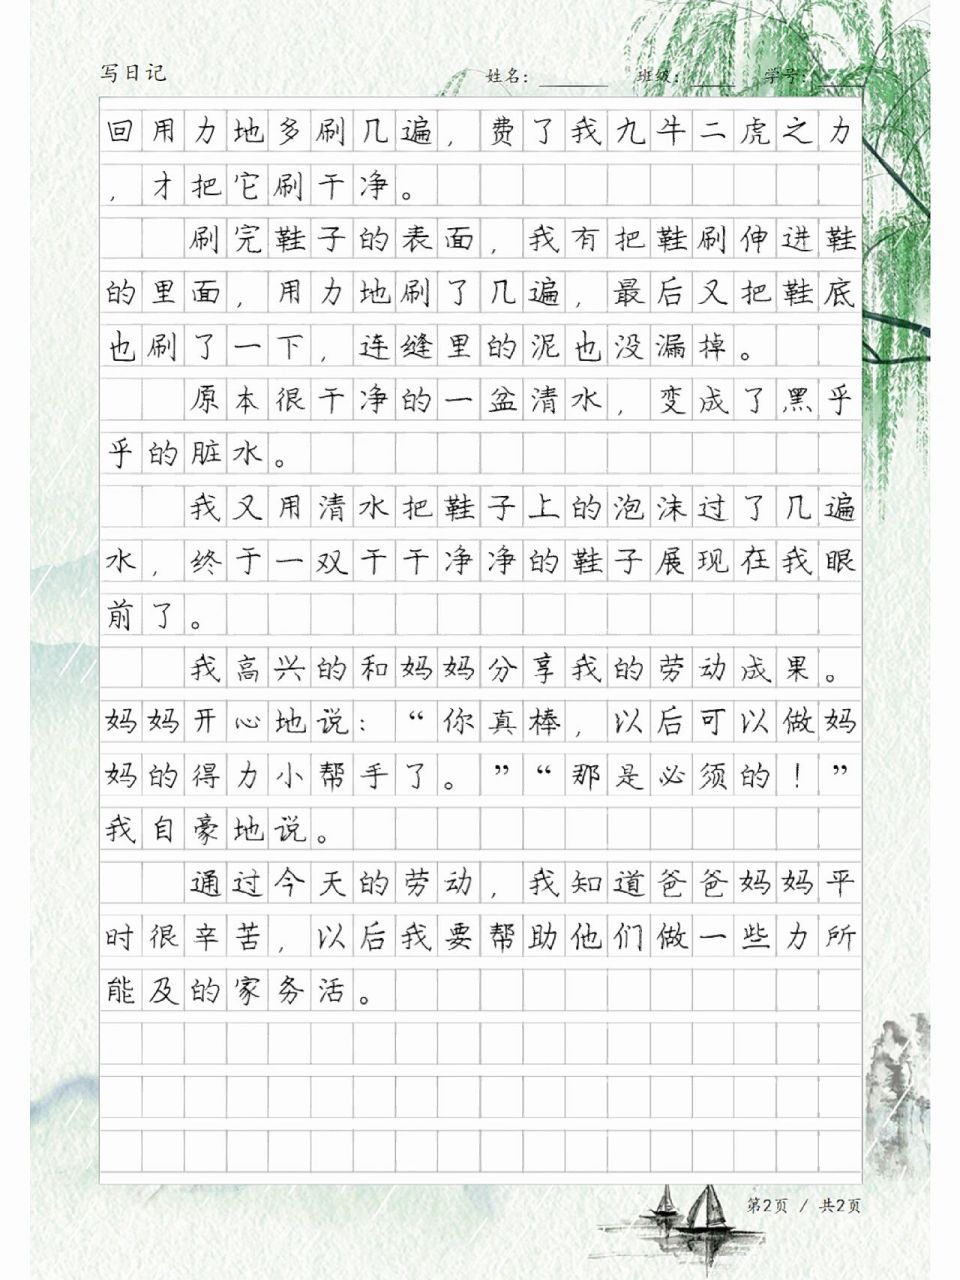 写日记 姓名： 班级： 学号：
回用力地多刷几遍，费了我九牛二虎之力
，才把它刷干净。
刷完鞋子的表面，我有把鞋刷伸进鞋
的里面，用力地刷了几遍，最后又把鞋底
也刷了一下，连缝里的泥也没漏掉。
原本很干净的一盆清水，变成了黑乎
乎的脏水。
我又用清水把鞋子上的泡沫过了几遍
水，终于一双干干净净的鞋子展现在我眼
前了。
我高兴的和妈妈分享我的劳动成果。
妈妈开心地说：“你真棒，以后可以做妈
妈的得力小帮手了。”“那是必须的！”
我自豪地说。
通过今天的劳动，我知道爸爸妈妈平
时很辛苦，以后我要帮助他们做一些力所
能及的家务活。
第2页 / 共2页